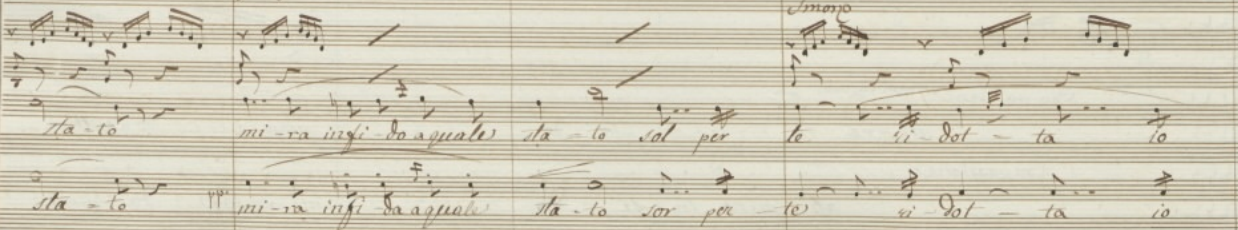 Smorz
sta - to mi - ra infi - do a quale sta - to sol per te ri - dot - ta io
pp. sta - to mi - ra infi - da a quale sta - to sor per te ri - dot - ta io